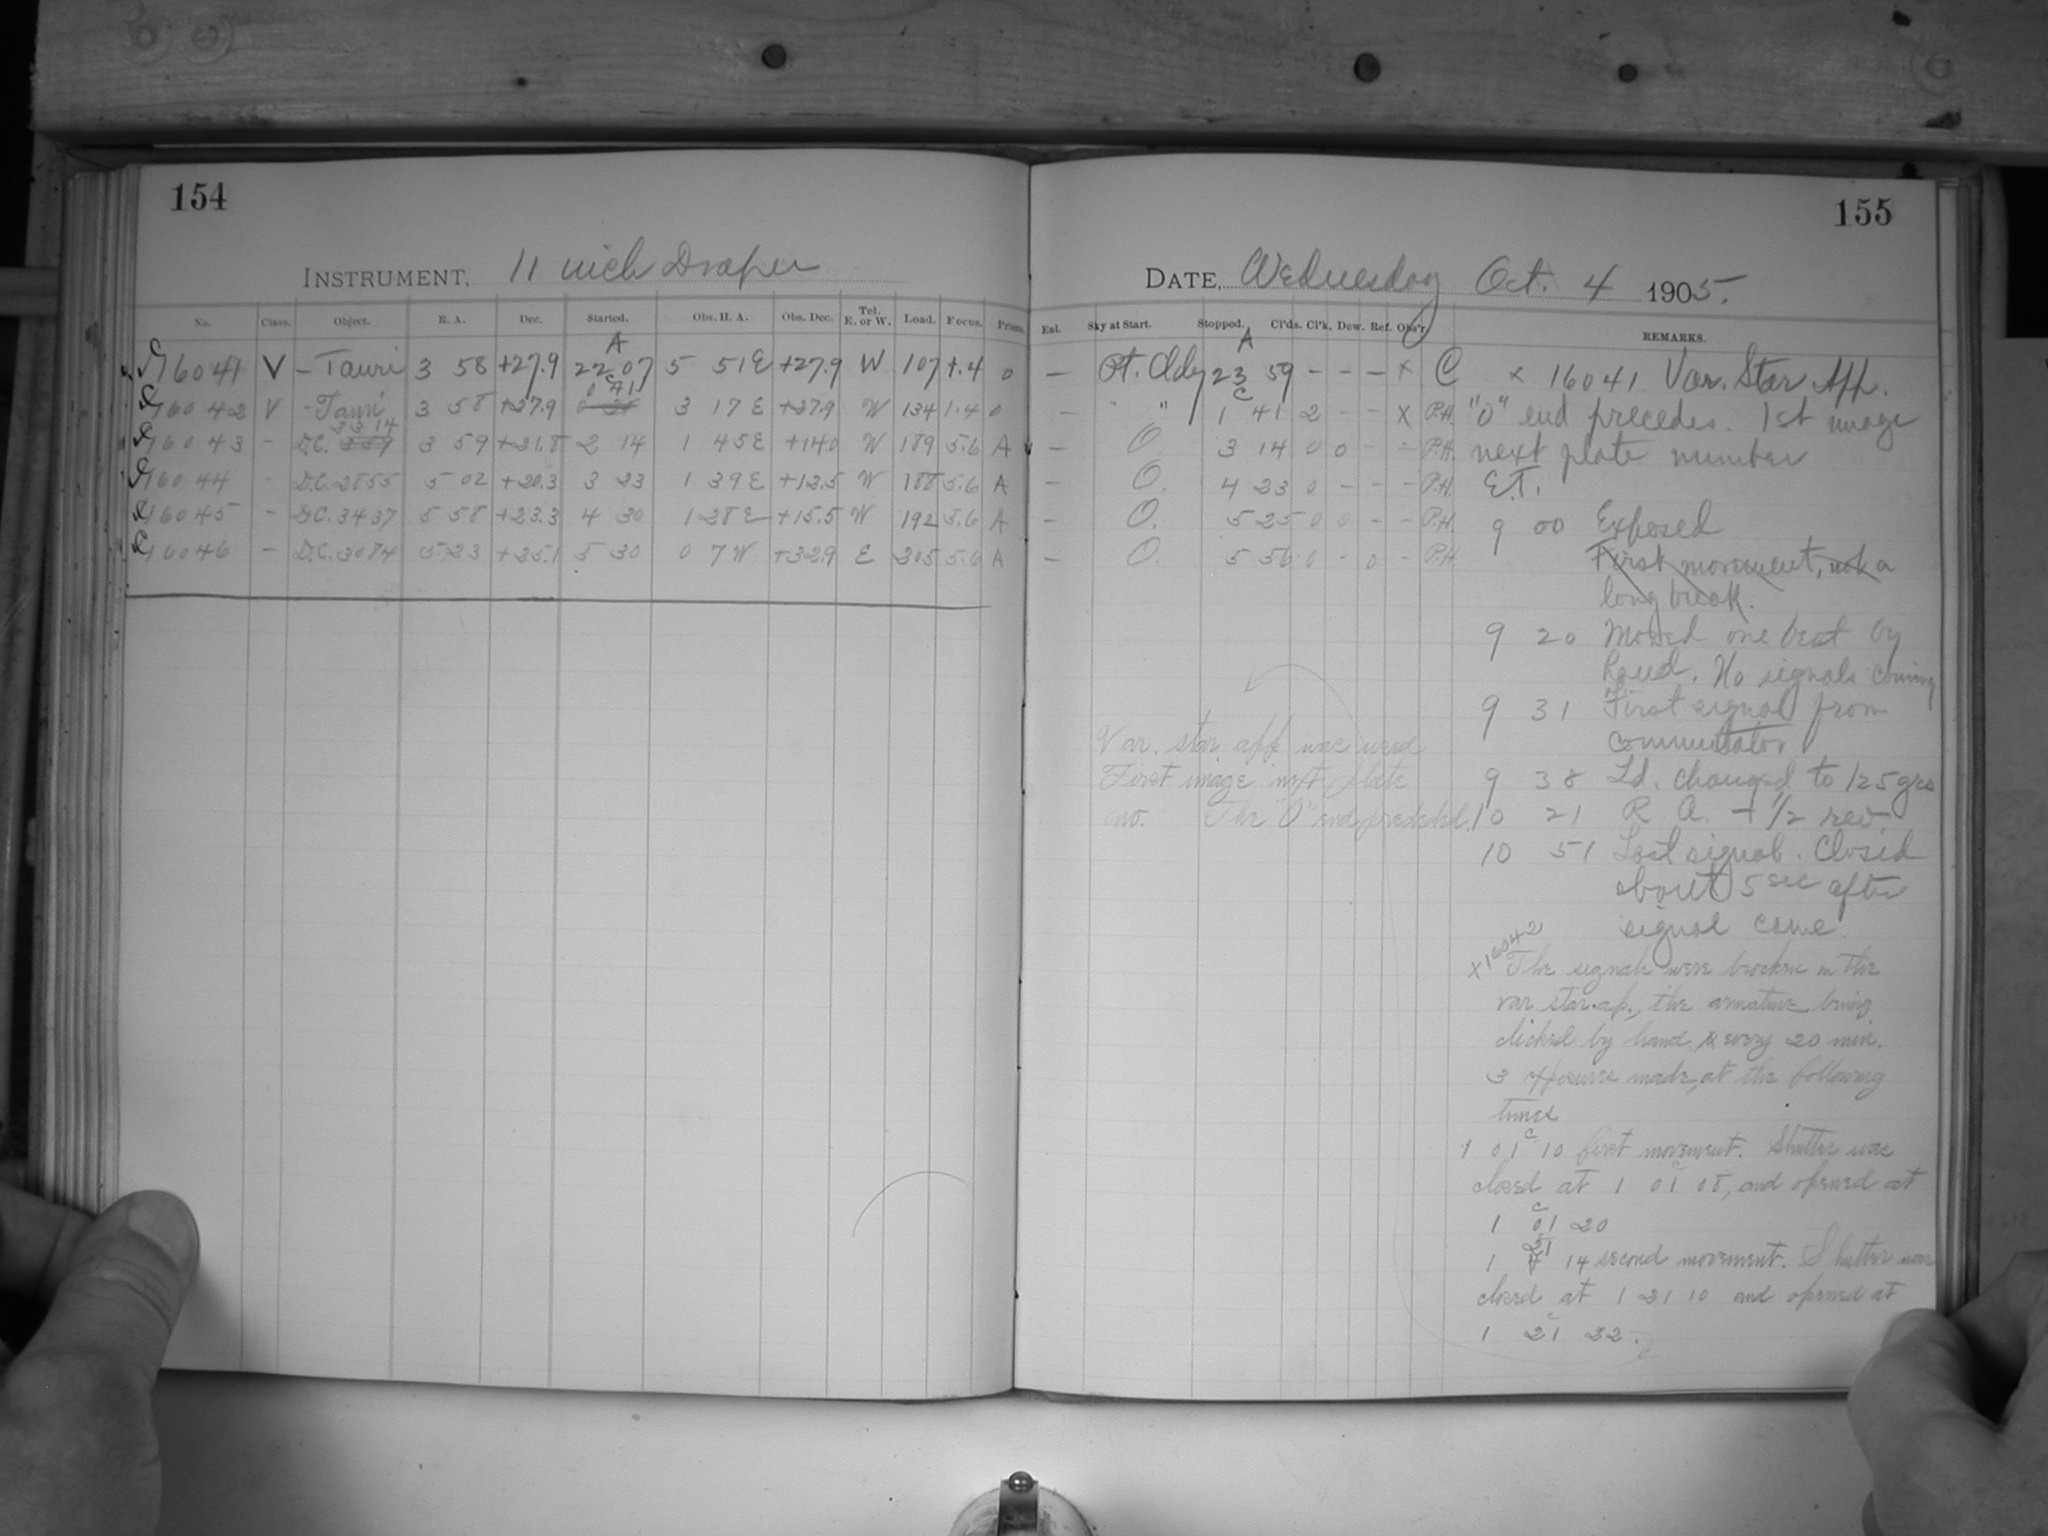 154
INSTRUMENT, 11 inch Draper
No. Class. Object. R. A. Dec. Started. Obs. H. A. Obs. Dec. Tel. E. or W. Load. Focus. Prisms.
16041 V - Tauri 3 58 +27.9 22 07 A 5 51 E +27.9 W 107 +.4 0
16042 V - Tauri 3 58 +27.9 0 41 C 3 17 E +27.9 W 134 1.4 0
16043 - D.C. 2314 3 59 +31.8 2 14 1 45 E +14.0 W 189 5.6 A
16044 - D.C. 2855 5 02 +20.3 3 23 1 39 E +12.5 W 188 5.6 A
16045 - D.C. 3437 5 58 +23.3 4 30 1 28 E +15.5 W 192 5.6 A
16046 - D.C. 3074 5 23 +25.1 5 30 0 7 W +32.9 E 205 5.6 A
155
DATE, Wednesday Oct. 4 1905.
Ent. Sky at Start. Stopped. Cl'ds. Cl'k. Dew. Ref. Obs'r. REMARKS.
Pt. Cldy 23 59 A - - - x C
— " 1 41 C 2 - - x P.H.
— O 3 14 0 0 - - P.H.
— O. 4 23 0 - - - P.H.
— O. 5 25 0 0 - - P.H.
— O. 5 56 0 - 0 - P.H.
x 16041 Var. Star App.
"O" end precedes. 1st image
next plate number
E.T.
9 00 Exposed
First movement, not a
long break.
9 20 Moved one beat by
hand. No signals coming
9 31 First signal from
commutator
9 38 Ld. changed to 125 grs
10 21 R. A. + 1/2 rev.
10 51 Last signal. Closed
about 5 sec after
signal came.
Var. star app was used
First image next plate
no. The "O" end preceded.
x 16042
The signals were broken in the
var star ap., the armature being
clicked by hand every 20 min.
3 exposures made, at the following
times
1 01 10 C first movement. Shutter was
closed at 1 01 08 C, and opened at
1 01 20 C
1 21 14 second movement. Shutter was
closed at 1 21 10 and opened at
1 21 22 C.